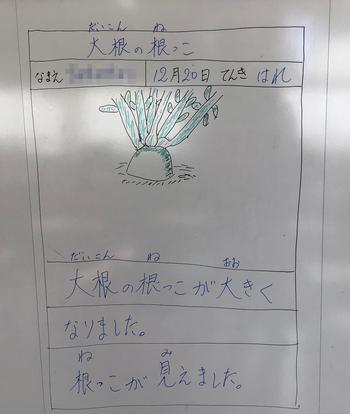 だいこん ね
大根の根っこ
なまえ 12月20日 てんき はれ
だいこん ね おお
大根の根っこが大きく
なりました。
ね み
根っこが見えました。